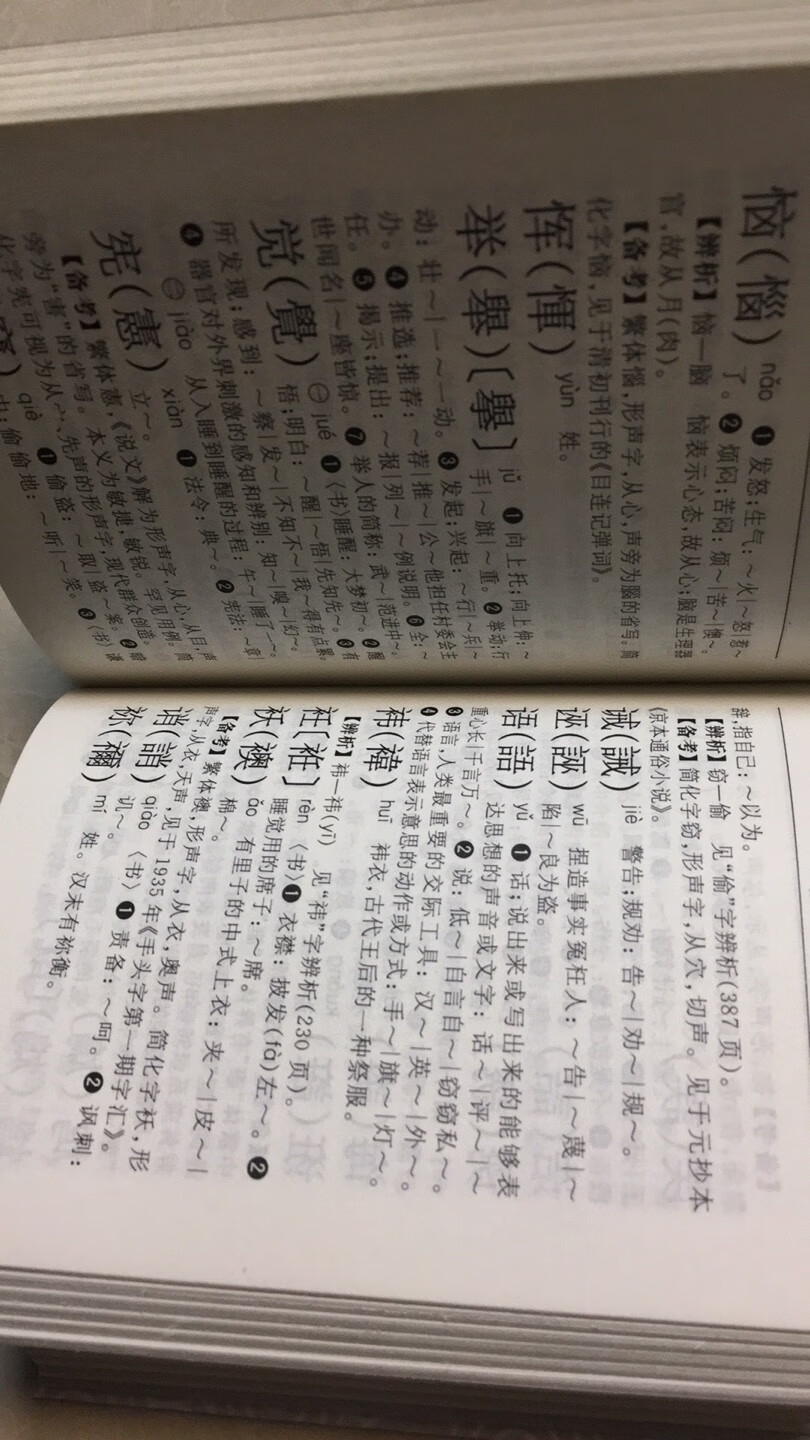 恼(惱) nǎo ❶ 发怒;生气:～火|～怒|惹～
了。❷ 烦闷;苦闷:烦～|苦～|懊～。
【辨析】恼—脑 恼表示心态,故从心;脑是生理器
官,故从月(肉)。
【备考】繁体惱,形声字,从心,声旁为腦的省写。简
化字恼,见于清初刊行的《目连记弹词》。
恽(惲) yùn 姓。
举(舉)〔擧〕 jǔ ❶ 向上托;向上伸:～
手|～旗|～重。❷ 举动;行
动:壮～|一～一动。❸ 发起;兴起:～行|～兵|～
办。❹ 推选;推荐:～荐|推～|公～他担任村委会主
任。❺ 揭示;提出:～报|列～|～例说明。❻ 全:～
世闻名|～座皆惊。❼ 举人的简称:武～|范进中～。
觉(覺) ㊀ jué ❶〈书〉睡醒:大梦初～。❷ 醒
悟;明白:～醒|～悟|先知先～。❸ 有
所发现;感到:～察|发～|不知不～|我～得有点累。
❹ 器官对外界刺激的感知和辨别:知～|嗅～|幻～。
㊁ jiào 从入睡到睡醒的过程:午～|睡了一～。
宪(憲) xiàn ❶ 法令:典～。❷ 宪法:～章|
立～。
【备考】繁体憲,《说文》解为形声字,从心,从目,声
旁为“害”的省写。本义为敏捷,敏锐。罕见用例。简
化字宪可视为从宀、先声的形声字,现代群众创造。
qiè ❶ 偷盗:～取|盗～|～案。❷ 暗
中;偷偷地:～听|～笑。❸〈书〉谦
辞,指自己:～以为。
【辨析】窃—偷 见“偷”字辨析(387 页)。
【备考】简化字窃,形声字,从穴,切声。见于元抄本
《京本通俗小说》。
诫(誡) jiè 警告;规劝:告～|劝～|规～。
诬(誣) wū 捏造事实冤枉人:～告|～蔑|～
陷|～良为盗。
语(語) yǔ ❶ 话;说出来或写出来的能够表
达思想的声音或文字:话～|评～|～
重心长|千言万～。❷ 说:低～|自言自～|窃窃私～。
❸ 语言,人类最重要的交际工具:汉～|英～|外～。
❹ 代替语言表示意思的动作或方式:手～|旗～|灯～。
袆(褘) huī 袆衣,古代王后的一种祭服。
【辨析】袆—祎(yī) 见“祎”字辨析(230 页)。
衽〔袵〕 rèn〈书〉❶ 衣襟:披发(fà)左～。❷
睡觉用的席子:～席。
袄(襖) ǎo 有里子的中式上衣:夹～|皮～|
棉～。
【备考】繁体襖,形声字,从衣,奥声。简化字袄,形
声字,从衣,夭声,见于 1935 年《手头字第一期字汇》。
诮(誚) qiào〈书〉❶ 责备:～呵。❷ 讽刺:
讥～。
祢(禰) mí 姓。汉末有祢衡。